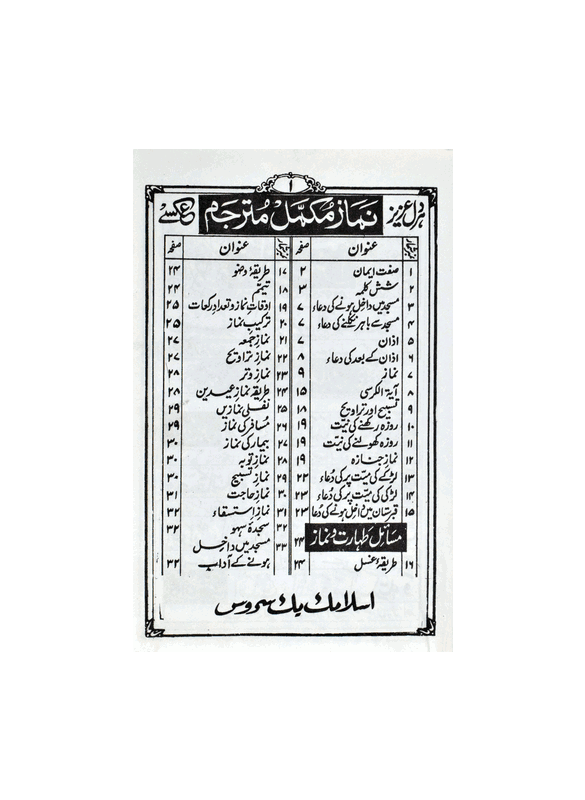 ۱
ہر دلعزیز نماز مُکمل مُترجم عکسی
نمبر شمار عنوان صفحہ
۱ صفت ایمان ۲
۲ شش کلمہ ۳
۳ مسجد میں داخل ہونے کی دعاء ۷
۴ مسجد سے باہر نکلنے کی دعاء ۷
۵ اذان ۷
۶ اذان کے بعد کی دعاء ۸
۷ نماز ۹
۸ آیۃ الکرسی ۱۵
۹ تسبیح اور تراویح ۱۸
۱۰ روزہ رکھنے کی نیّت ۱۹
۱۱ روزہ کھولنے کی نیّت ۱۹
۱۲ نماز جنازہ ۱۹
۱۳ لڑکے کی میّت پر کی دُعاء ۲۲
۱۴ لڑکی کی میّت پر کی دُعاء ۲۳
۱۵ قبرستان میں داخل ہونے کی دُعا ۲۳
مسائل طہارت و نماز ۲۴
۱۶ طریقۂ غسل ۲۴
نمبر شمار عنوان صفحہ
۱۷ طریقۂ وضو ۲۴
۱۸ تیمّم ۲۴
۱۹ اوقات نماز و تعداد رکعات ۲۵
۲۰ ترکیب نماز ۲۵
۲۱ نماز جمعہ ۲۷
۲۲ نماز تراویح ۲۷
۲۳ نماز وتر ۲۸
۲۴ طریقہ نماز عیدین ۲۸
۲۵ نفلی نمازیں ۲۹
۲۶ مُسافر کی نماز ۲۹
۲۷ بیمار کی نماز ۳۰
۲۸ نماز توبہ ۳۰
۲۹ نماز تسبیح ۳۰
۳۰ نماز حاجت ۳۱
۳۱ نماز استسقاء ۳۲
۳۲ سجدۂ سہو ۳۲
۳۳ مسجد میں داخل
ہونے کے آداب ۳۲
اسلامک بک سروس